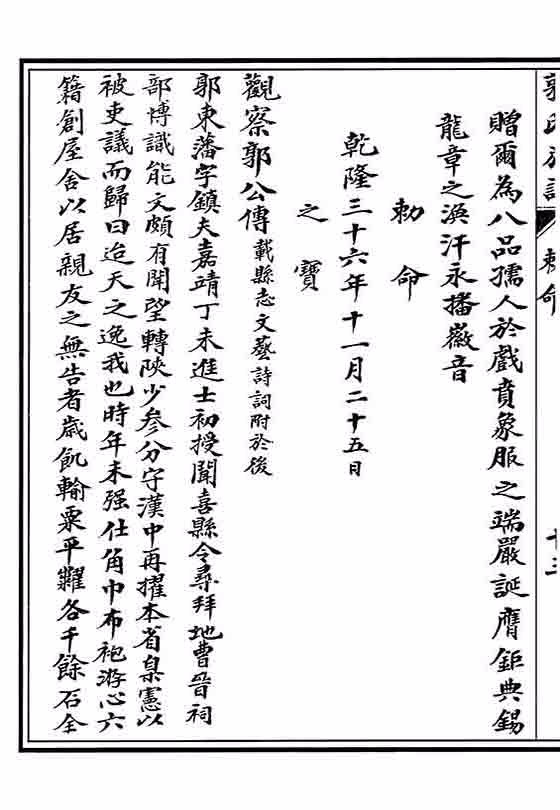 郭氏族譜 敕命 十三
贈爾為八品孺人於戲賁象服之端嚴誕膺鉅典錫
龍章之渙汗永播徽音
勅命
乾隆三十六年十一月二十五日
之寶
觀察郭公傳載縣志文藝詩詞附於後
郭東藩字鎮夫嘉靖丁未進士初授聞喜縣令尋拜地曹晉祠
部博識能文頗有聞望轉陝少參分守漢中再擢本省臬憲以
被吏議而歸曰迨天之逸我也時年未强仕角巾布袍游心六
籍創屋舍以居親友之無告者歲飢輸粟平糶各千餘石全